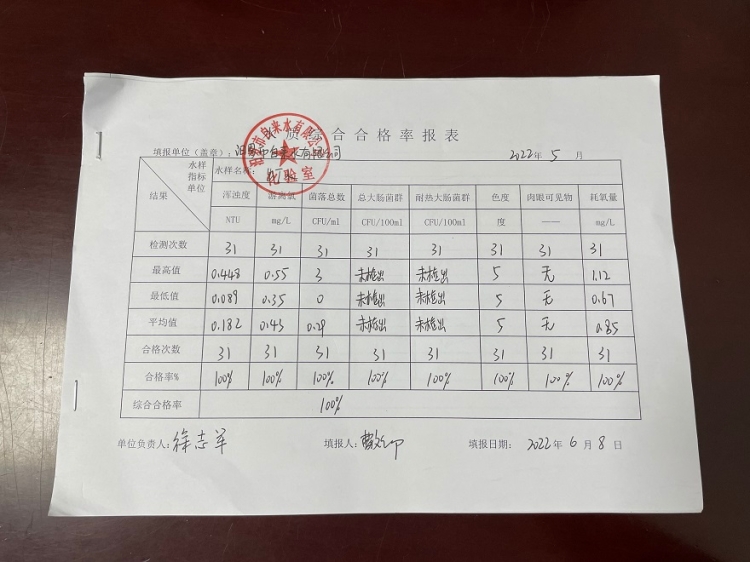 质综合合格率报表
填报单位（盖章）：汨罗市自来水有限公司 2022年 5 月
水样 指标 单位 水样名称：
结果 浑浊度 游离氯 菌落总数 总大肠菌群 耐热大肠菌群 色度 肉眼可见物 耗氧量
NTU mg/L CFU/ml CFU/100ml CFU/100ml 度 —— mg/L
检测次数 31 31 31 31 31 31 31 31
最高值 0.448 0.55 3 未检出 未检出 5 无 1.12
最低值 0.089 0.35 0 未检出 未检出 5 无 0.67
平均值 0.182 0.43 0.29 未检出 未检出 5 无 0.85
合格次数 31 31 31 31 31 31 31 31
合格率% 100% 100% 100% 100% 100% 100% 100% 100%
综合合格率 100%
单位负责人：徐志军 填报人： 填报日期： 2022 年 6 月 8 日
市自来水有限公司
化验室